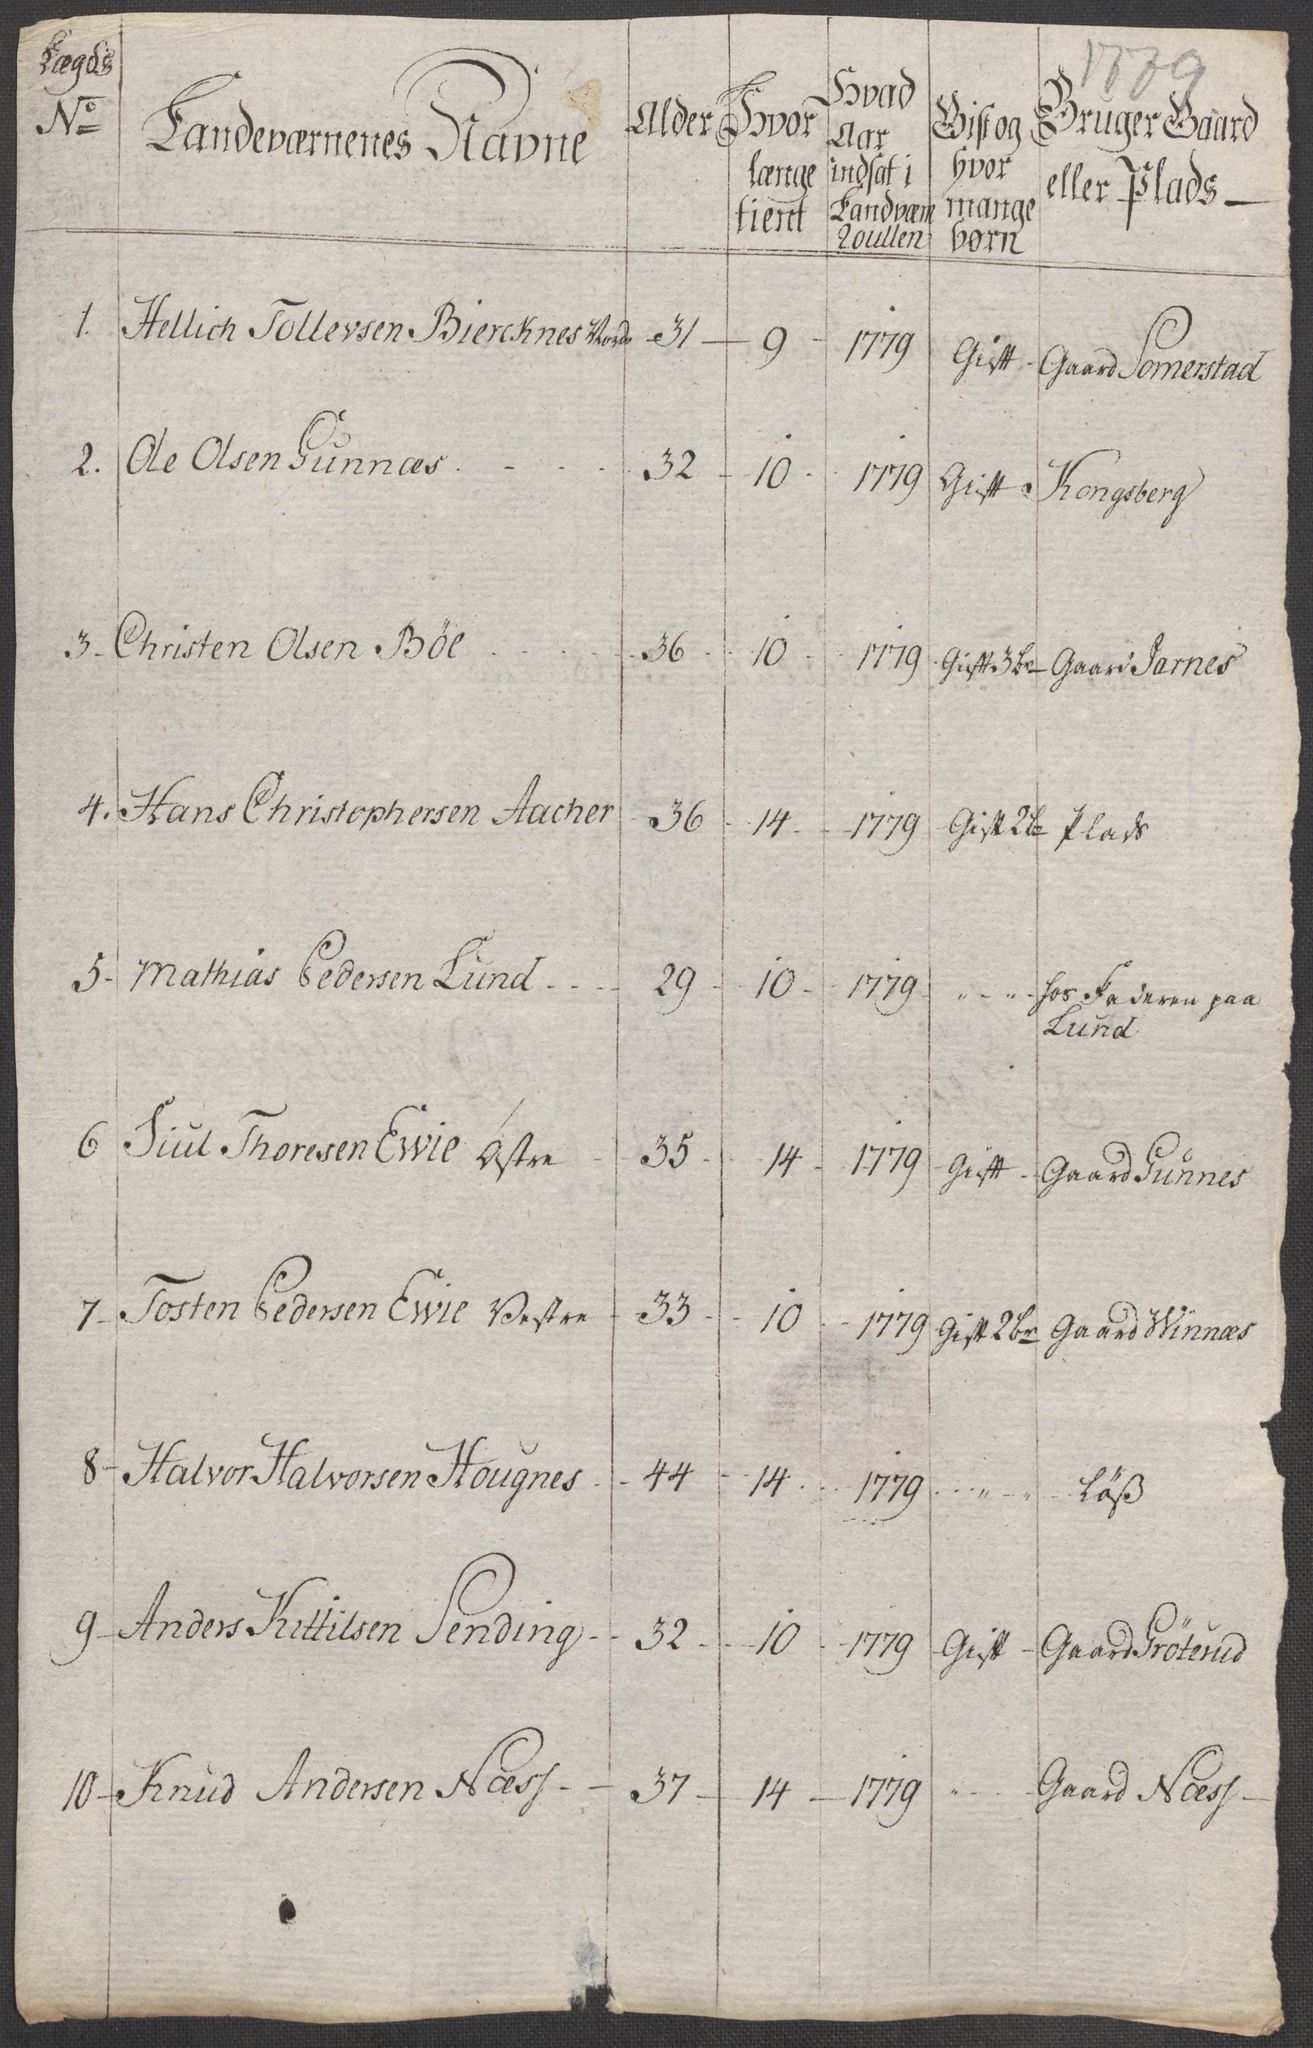 1779
Lægds No Landeværnenes Navne Alder Hvor længe tient Hvad Aar indsat i Landværn Roullen Gift og hvor mange børn Bruger Gaard eller Plads
1. Hellich Tollevsen Biercknes Nordr 31 9 1779 Gift Gaard Somerstad
2. Ole Olsen Gunnæs 32 10 1779 Gift Kongsberg
3 Christen Olsen Böe 36 10 1779 Gift 3 br Gaard Jarnes
4. Hans Christophersen Aacher 36 14 1779 Gift 2 br Plads
5 Mathias Pedersen Lund 29 10 1779 " " hos Faderen paa
Lund
6 Siul Thoresen Ewie Östre 35 14 1779 Gift Gaard Gunnes
7 Tosten Pedersen Ewie Vestre 33 10 1779 Gift 2 br Gaard Winnæs
8 Halvor Halvorsen Hougnes 44 14 1779 " " Löß
9 Anders Kittilsen Sending 32 10 1779 Gift Gaard Gröterud
10 Knud Andersen Næss 37 14 1779 " Gaard Næss